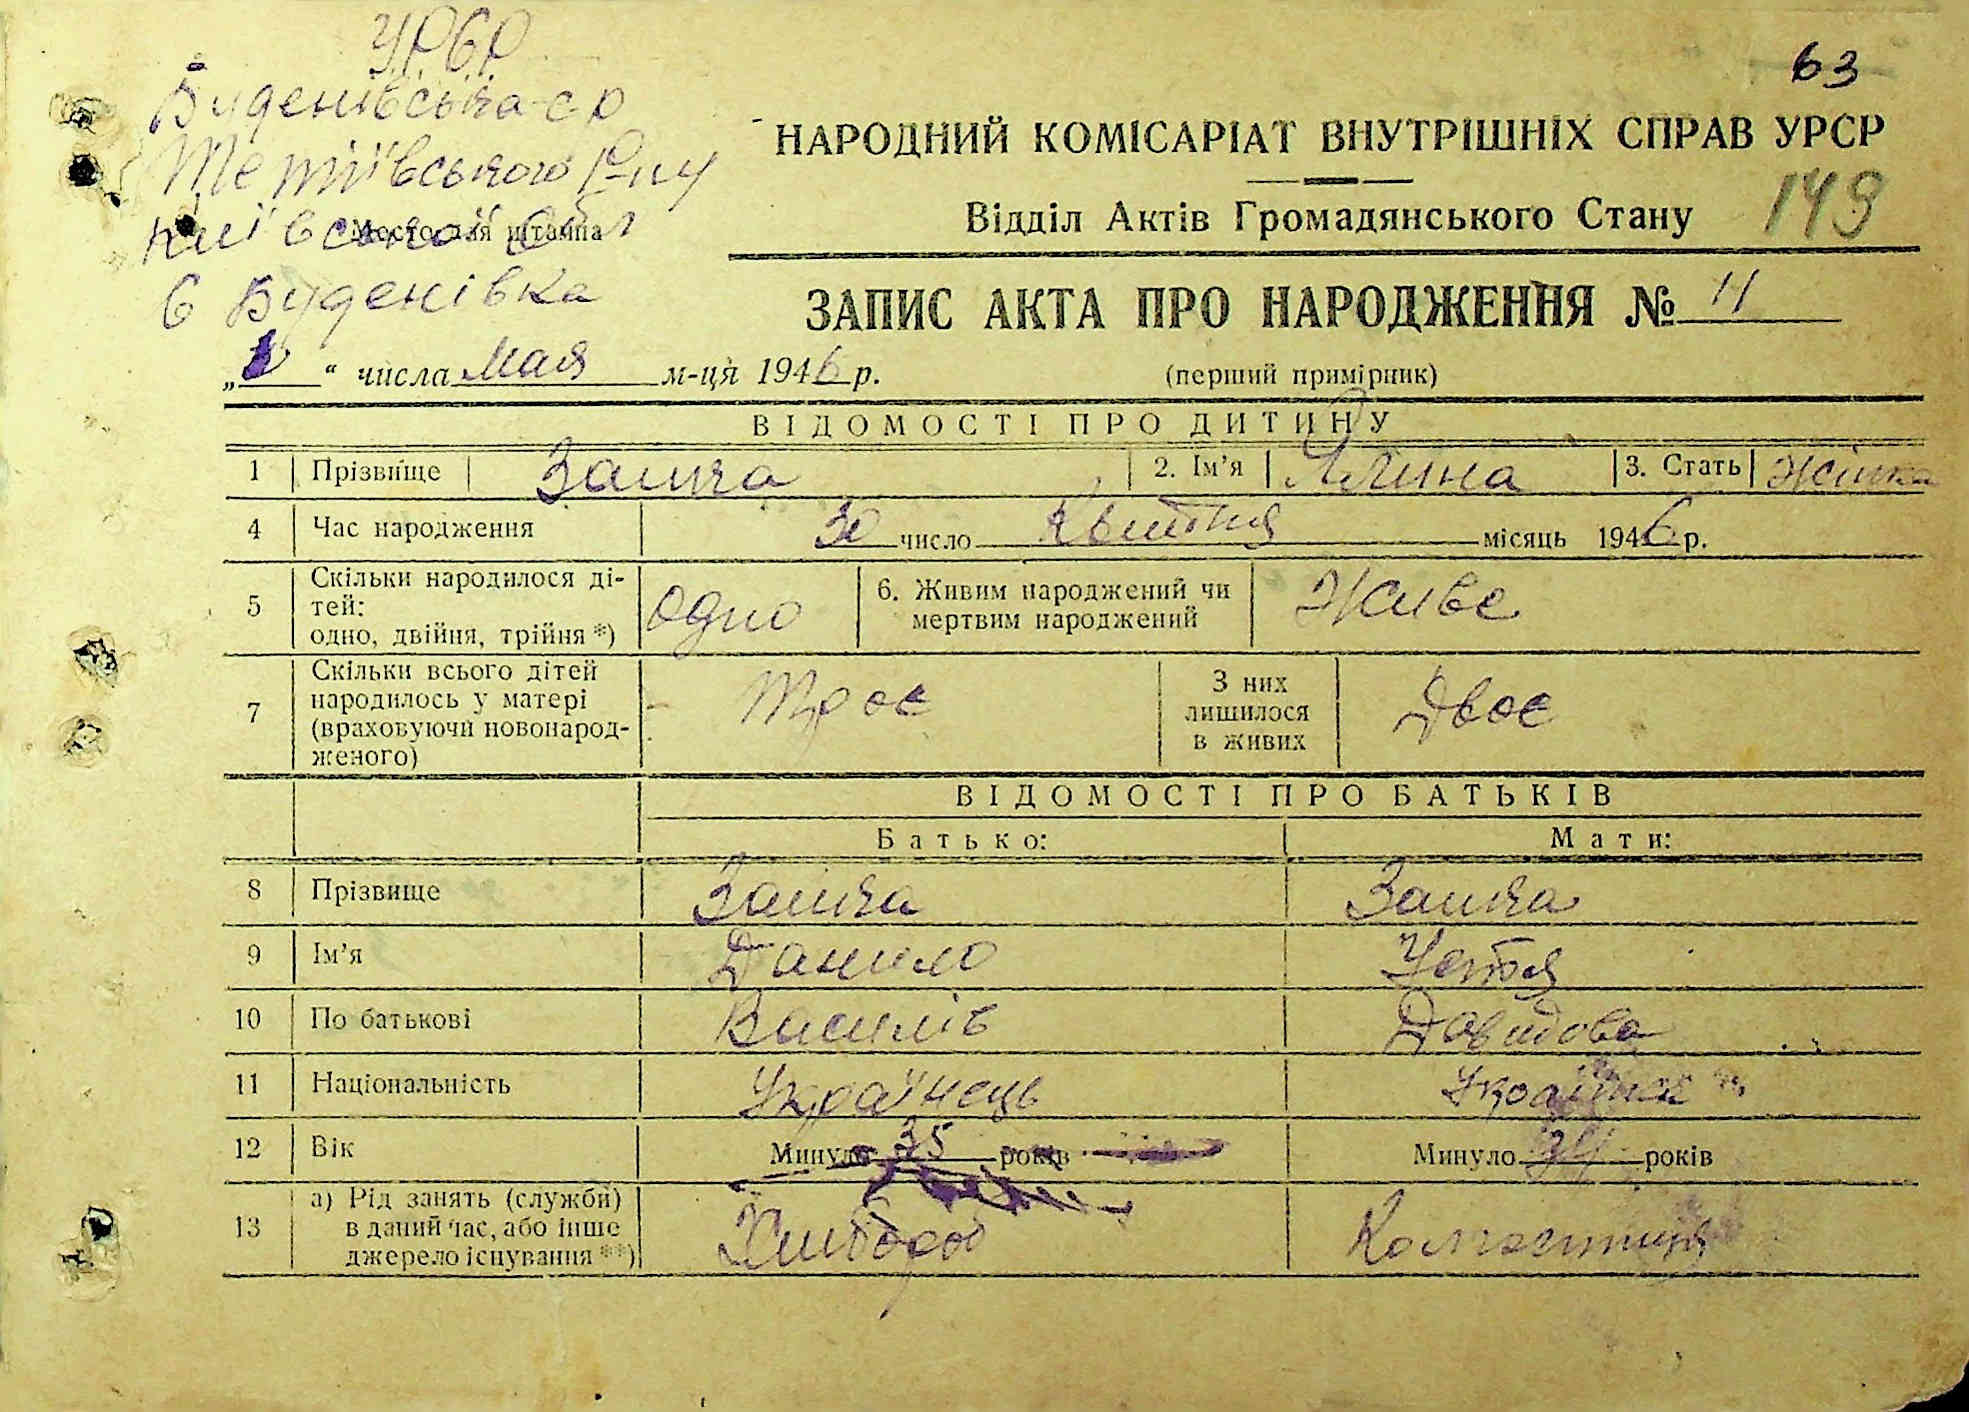 УРСР
63
Буденівська с-р
Тетіївського р-ну
НАРОДНИЙ КОМІСАРІАТ ВНУТРІШНІХ СПРАВ УРСР
Київської обл
Место для штампа
Відділ Актів Громадянського Стану
149
с Буденівка
ЗАПИС АКТА ПРО НАРОДЖЕННЯ № 11
„1“ числа Мая м-ця 1946 р.
(перший примірник)
ВІДОМОСТІ ПРО ДИТИНУ
1 Прізвище Заика 2. Ім’я Ялина 3. Стать Жінка
4 Час народження 30 число Квітня місяць 1946 р.
5 Скільки народилося ді-
тей:
одно, двійня, трійня *) одно 6. Живим народжений чи
мертвим народжений Живе
7 Скільки всього дітей
народилось у матері
(враховуючи новонарод-
женого) Троє З них
лишилося
в живих Двоє
ВІДОМОСТІ ПРО БАТЬКІВ
Батько: Мати:
8 Прізвище Заика Заика
9 Ім’я Данило Устя
10 По батькові Василів Давидова
11 Національність Українець Українка
12 Вік Минуло 35 років Минуло 34 років
13 а) Рід занять (служби)
в даний час, або інше
джерело існування **) Хлібороб Колгоспниця